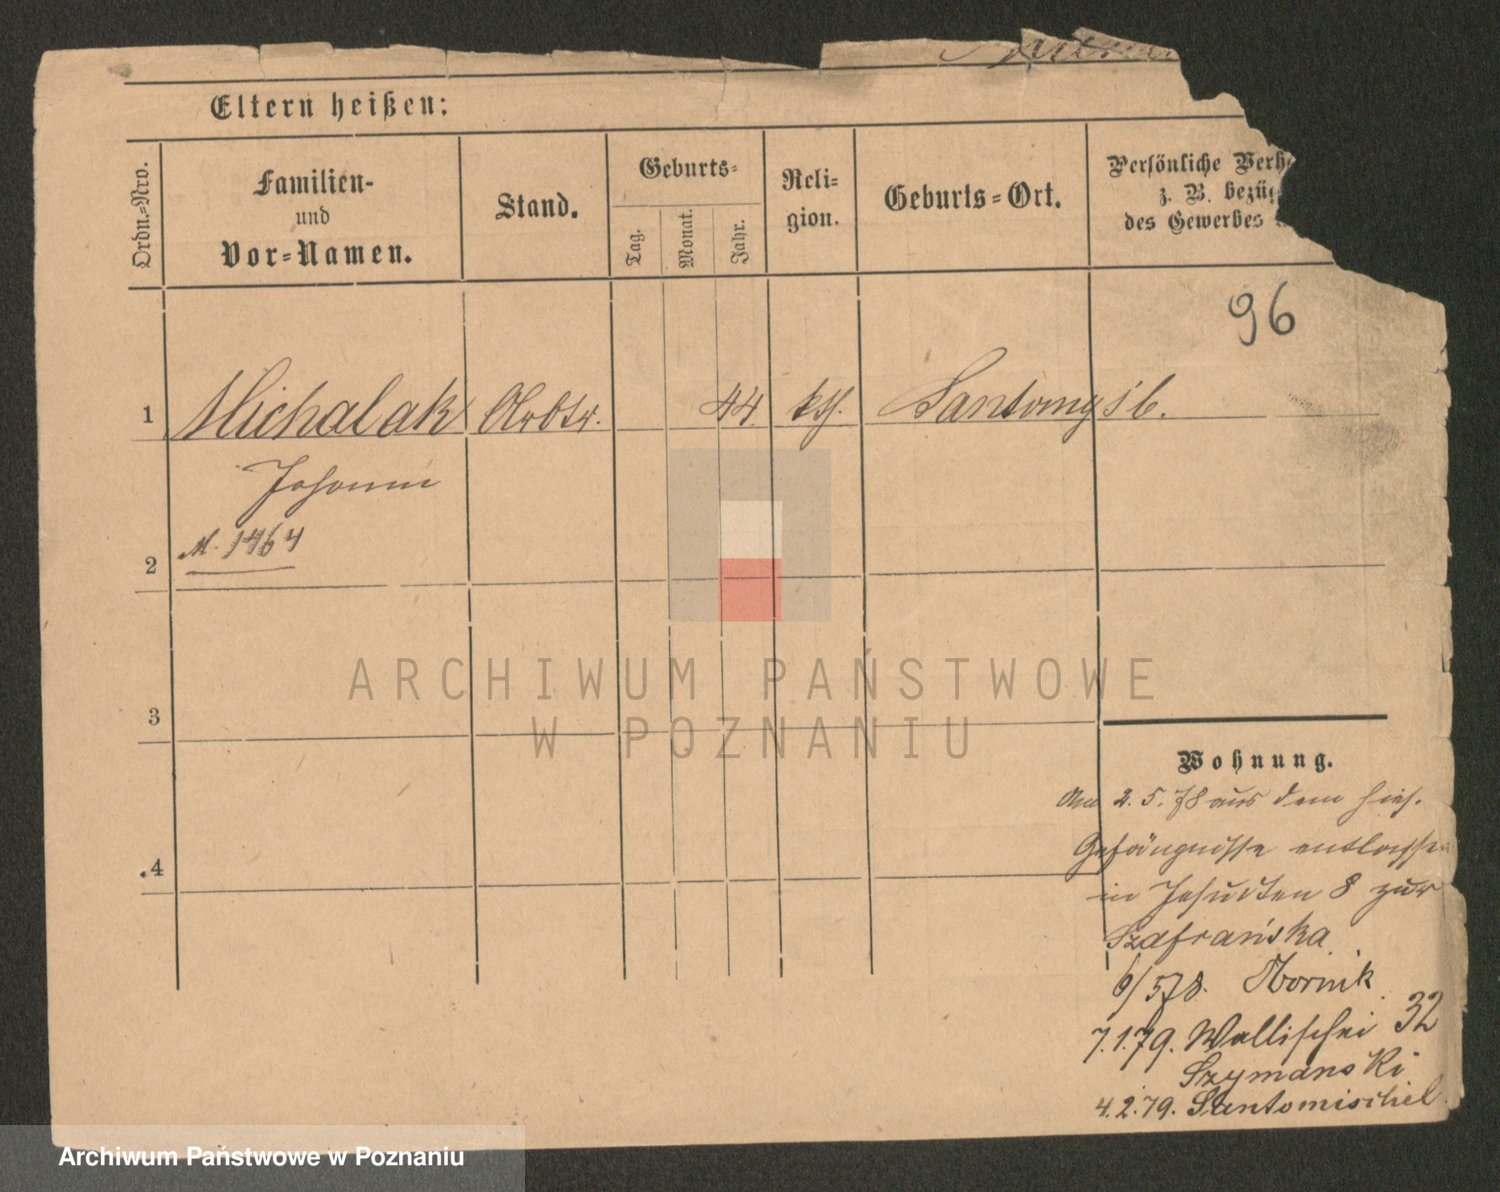 Eltern heißen:
Ordn.-Nro.
Familien-
und
Vor-Namen.
Stand.
Geburts-
Tag.
Monat.
Jahr.
Reli-
gion.
Geburts-Ort.
Persönliche Verh
z. B. bezüg
des Gewerbes
96
1
Michalak
44
kth.
Johann
M. 1464
2
3
4
ARCHIWUM PAŃSTWOWE
W POZNANIU
Wohnung.
2.5.78 aus dem hies.
Gefängnisse entlassen
in Jesuiten 8 zur
Szafrańska
6/5 78. Obornik
7.1.79. Wallischei 32
Szymanski
4.2.79. Santomischel
Archiwum Państwowe w Poznaniu